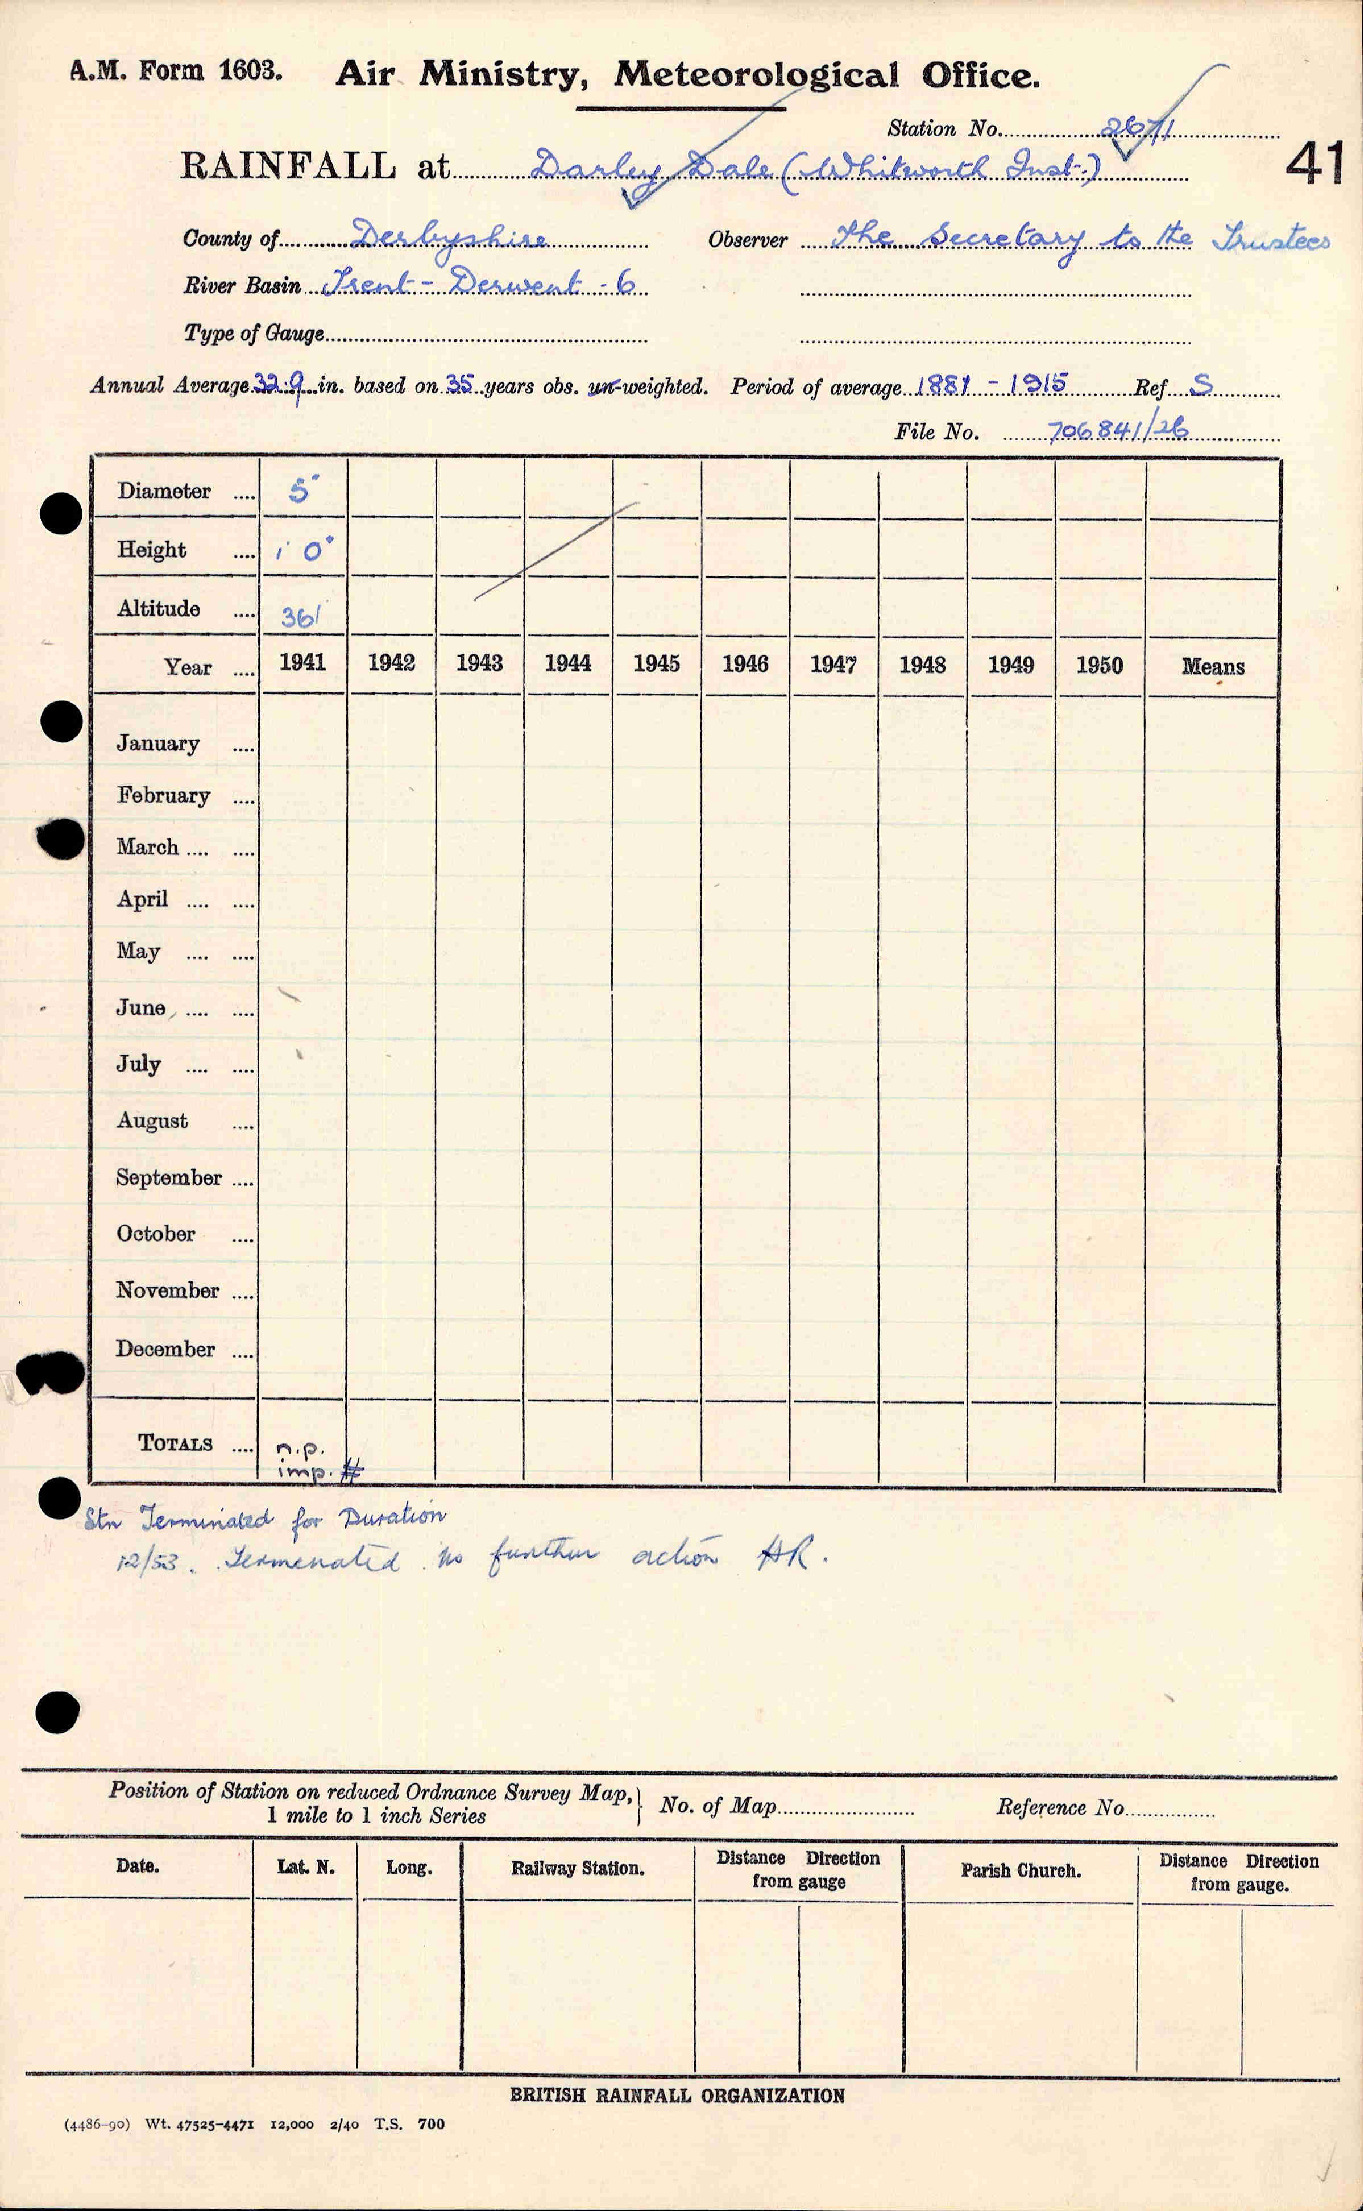 A.M. Form 1603. Air Ministry, Meteorological Office.
Station No. 2671
RAINFALL at Darley Dale (Whitworth Inst.) 41
County of Derbyshire Observer The Secretary to the Trustees
River Basin Trent - Derwent - 6
Type of Gauge
Annual Average 32.9 in. based on 35 years obs. un-weighted. Period of average 1881 - 1915 Ref S
File No. 706841/26
Diameter .... 5"
Height .... 1' 0"
Altitude .... 361
Year .... 1941 1942 1943 1944 1945 1946 1947 1948 1949 1950 Means
January ....
February ....
March .... ....
April .... ....
May .... ....
June .... ....
July .... ....
August ....
September ....
October ....
November ....
December ....
TOTALS .... n.p.
imp. #
Stn Terminated for Duration
12/53. Termenated. No further action HR.
Position of Station on reduced Ordnance Survey Map, 1 mile to 1 inch Series } No. of Map Reference No.
Date. Lat. N. Long. Railway Station. Distance Direction from gauge Parish Church. Distance Direction from gauge.
BRITISH RAINFALL ORGANIZATION
(4486-90) Wt. 47525-4471 12,000 2/40 T.S. 700